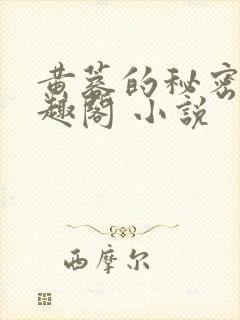 黄墓的秘密
趣阁 小説
西摩尔